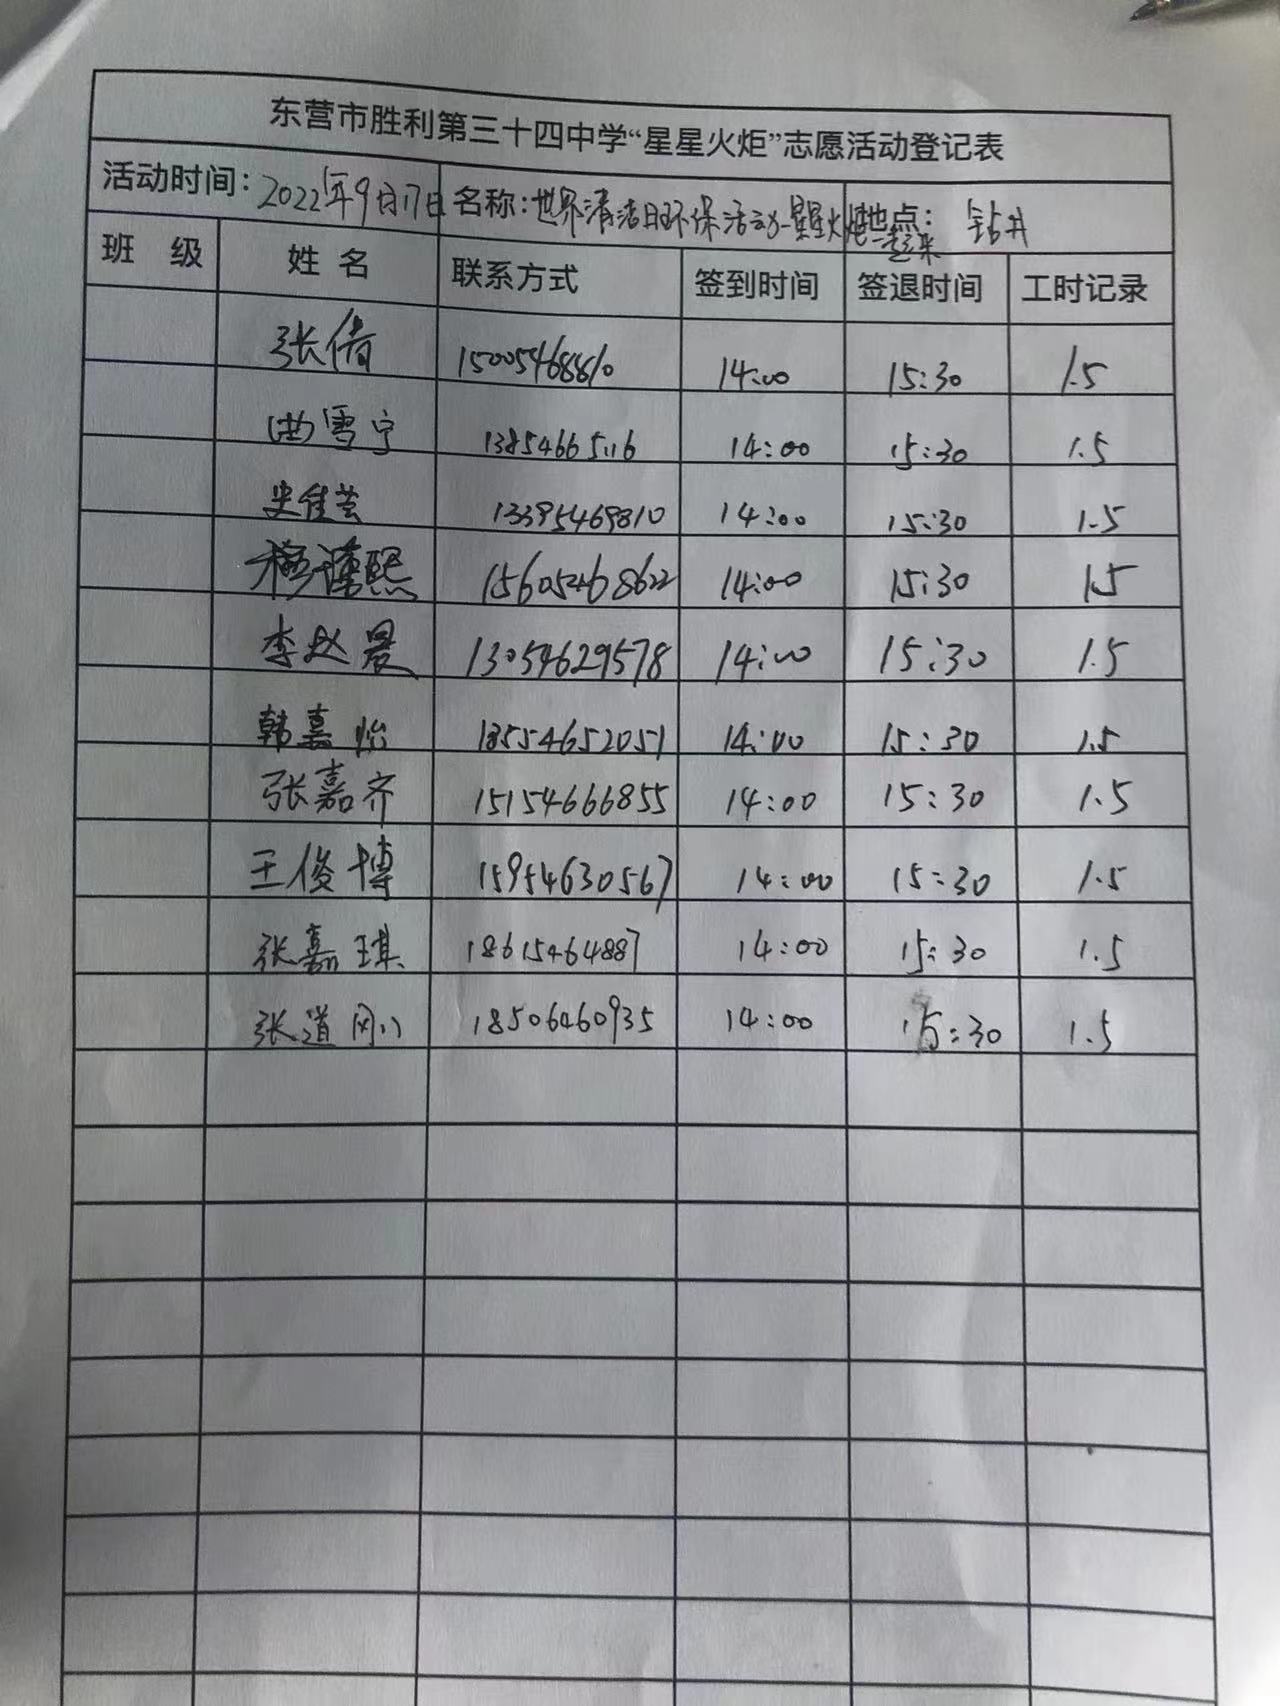 东营市胜利第三十四中学“星星火炬”志愿活动登记表
活动时间：2022年9月17日 名称：世界清洁日环保活动-星星火炬 地点：钻井
一起来
班 级 姓 名 联系方式 签到时间 签退时间 工时记录
张倩 15005468810 14:00 15:30 1.5
曲雪宁 13854665116 14:00 15:30 1.5
史佳芸 13395469810 14:00 15:30 1.5
穆谨熙 15605468622 14:00 15:30 1.5
李赵晨 13054629578 14:00 15:30 1.5
韩嘉怡 14:00 15:30 1.5
张嘉齐 15154666855 14:00 15:30 1.5
王俊博 15954630567 14:00 15:30 1.5
张嘉琪 18615464887 14:00 15:30 1.5
张道刚 18506460935 14:00 15:30 1.5